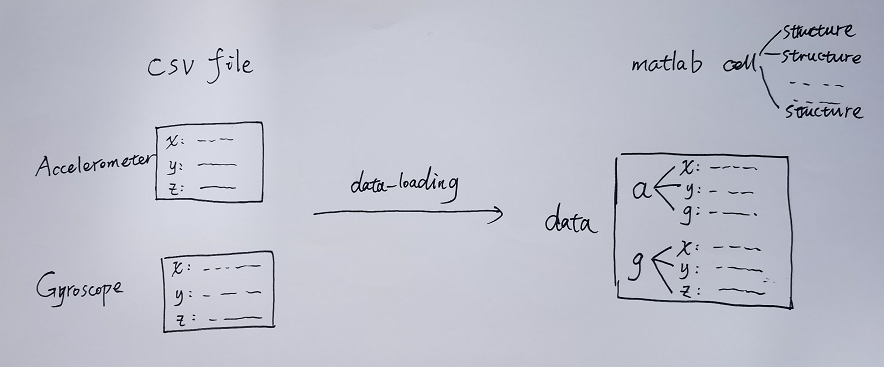 csv file
Accelerometer
x:
y:
z:
Gyroscope
x:
y:
z:
data-loading
matlab cell
structure
structure
structure
data
a
x:
y:
g:
g
x:
y:
z: